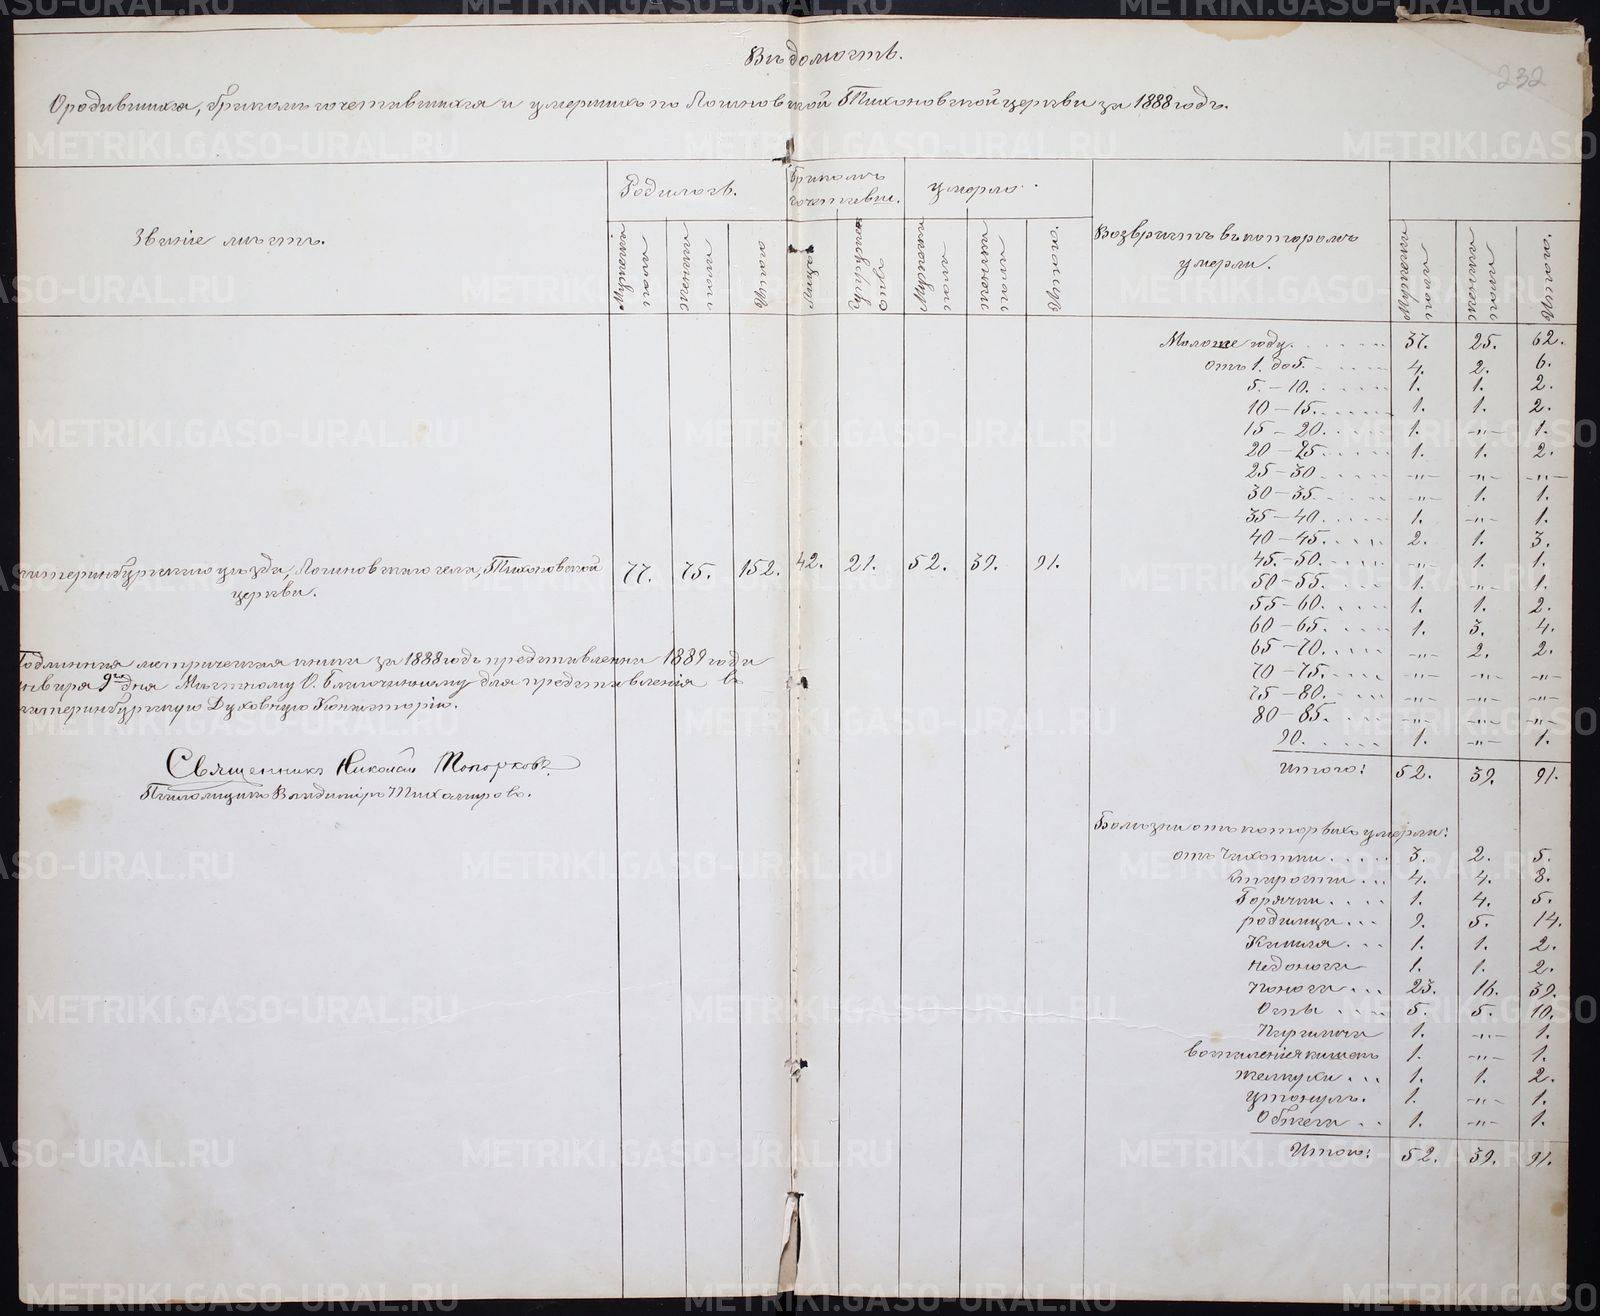 Вѣдомость.
232
О родившихся, бракомъ сочетавшихся и умершихъ по Логиновской Тихоновской церкви за 1888 годъ.
Званіе мѣстъ.
Родилось.
Бракомъ сочетавш.
умерло.
Возврастъ въ которомъ умерли.
Мужеска пола
женска пола
Итого
Лицъ
супружествъ
Мужеска пола
женска пола
Итого
Мужеска пола
женска пола
Итого.
Моложе году. 37. 25. 62.
отъ 1. до 5. 4. 2. 6.
5. – 10. 1. 1. 2.
10 – 15. 1. 1. 2.
15 – 20. 1. -„- 1.
20 – 25. 1. 1. 2.
25 – 30 -„- -„- -„-
30 – 35. -„- 1. 1.
35 – 40. 1. -„- 1.
40 – 45. 2. 1. 3.
45. – 50. -„- 1. 1.
50 – 55. 1. -„- 1.
55 – 60. 1. 1. 2.
60 – 65. 1. 3. 4.
65 – 70. -„- 2. 2.
70 – 75. -„- -„- -„-
75 – 80. -„- -„- -„-
80 – 85. -„- -„- -„-
90. 1. -„- 1.
Итого: 52. 39. 91.
катеринбургскаго уѣзда, Логиновскаго села, Тихоновской 77. 75. 152. 42. 21. 52. 39. 91.
церкви.
Подлинная метрическая книга за 1888 годъ представлена 1889 года
января 9го дня Мѣстному О. Благочинному для представленія въ
катеринбургскую Духовную Консисторію.
Священникъ Николай Топорковъ
Псаломщикъ Владиміръ Тихомировъ.
Болѣзни отъ которыхъ умерли:
отъ Чахотки 3. 2. 5.
старости 4. 4. 8.
Горячки 1. 4. 5.
родимца 9. 5. 14.
Кашля 1. 1. 2.
недоноски 1. 1. 2.
Поноса 23. 16. 39.
Оспы 5. 5. 10.
1. -„- 1.
воспаленія кишекъ 1. -„- 1.
желтухи 1. 1. 2.
утонулъ. 1. -„- 1.
Обжога 1. -„- 1.
Итого: 52. 39. 91.
METRIKI.GASO-URAL.RU